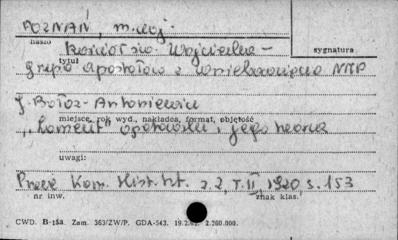 POZNAŃ, m. woj.
hasło
Kościół św. Wojciecha –
sygnatura
tytuł
grupa apostołów z Wniebowzięcia NMP
J. Bołoz-Antoniewicz
miejsce, rok wyd., nakładca, format, objętość
"Lament" opatowski i jego twórca
uwagi:
Prace Kom. Hist. Szt. z. 2, T. II, 1920 s. 153
nr inw.
znak klas.
CWD. B-15a. Zam. 363/ZW/P. GDA-543. 19.2. 2.200.000.